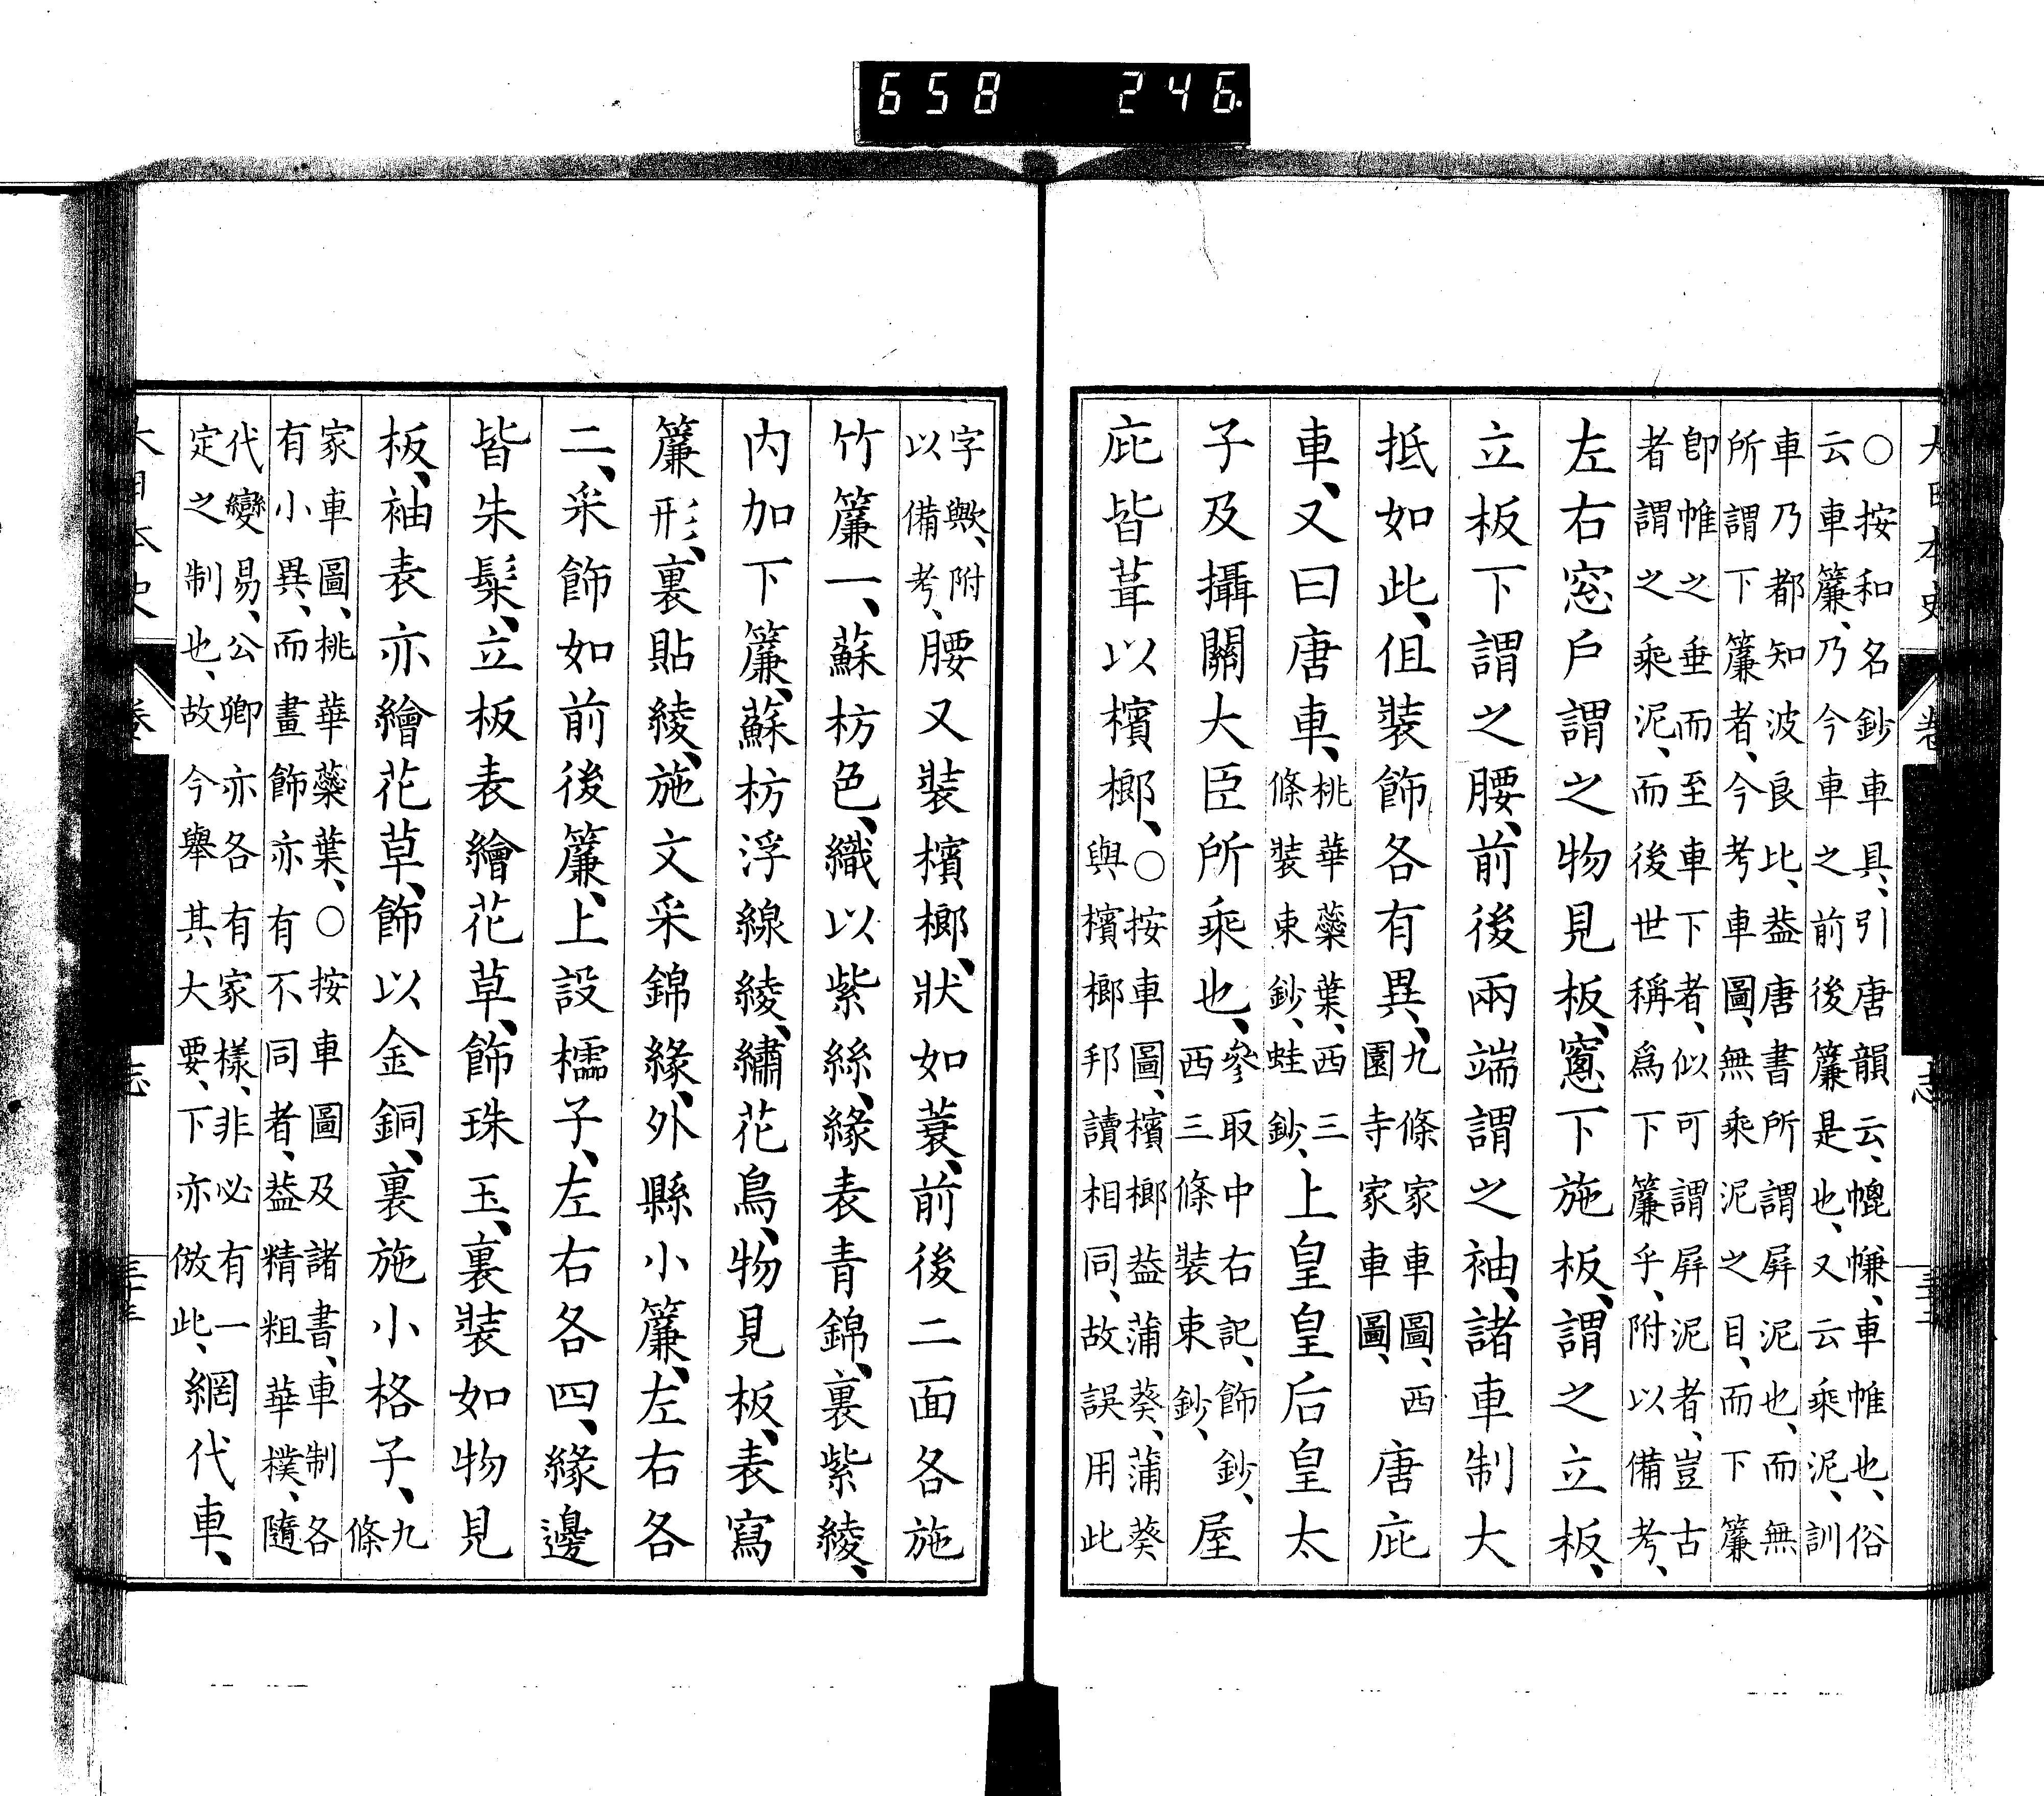 658 246
大日本史 卷 志
○按和名鈔車具、引唐韻云、幒㡘、車帷也、俗
云車簾、乃今車之前後簾是也、又云乘泥、訓
車乃都知波良比、蓋唐書所謂屏泥也、而無
所謂下簾者、今考車圖、無乘泥之目、而下簾
卽帷之垂而至車下者、似可謂屏泥者、豈古
者謂之乘泥、而後世稱爲下簾乎、附以備考、
左右窓戶謂之物見板、窻下施板、謂之立板、
立板下謂之腰、前後兩端謂之袖、諸車制大
抵如此、但裝飾各有異、九條家車圖、西園寺家車圖、唐庇
車、又曰唐車、桃華蘂葉、西三條裝束鈔、蛙鈔、上皇皇后皇太
子及攝關大臣所乘也、參取中右記、飾鈔、西三條裝束鈔、屋
庇皆葺以檳榔、○按車圖、檳榔蓋蒲葵、蒲葵
與檳榔邦讀相同、故誤用此
字歟、附
以備考、腰又裝檳榔、狀如蓑、前後二面各施
竹簾一、蘇枋色、織以紫絲、緣表青錦、裏紫綾、
內加下簾、蘇枋浮線綾、繡花鳥、物見板、表寫
簾形、裏貼綾、施文采錦緣、外縣小簾、左右各
二、采飾如前後簾、上設檽子、左右各四、緣邊
皆朱髹、立板表繪花草、飾珠玉、裏裝如物見
板、袖表亦繪花草、飾以金銅、裏施小格子、九條
家車圖、桃華蘂葉、○按車圖及諸書、車制各
有小異、而畫飾亦有不同者、蓋精粗華樸、隨
代變易、公卿亦各有家樣、非必有一
定之制也、故今舉其大要、下亦倣此、網代車、
大日本史 卷 志